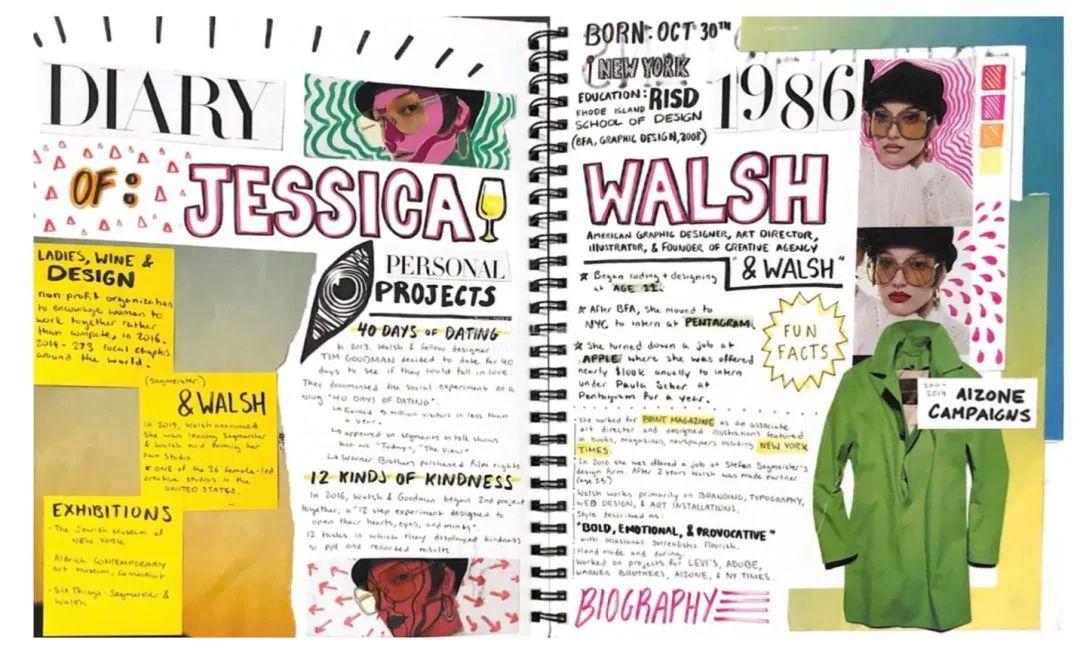 DIARY
OF:
JESSICA
LADIES, WINE &
DESIGN
non profit organization
to encourage women to
work together rather
than compete, in 2016.
2019 - 273 local chapters
around the world.
(Sagmeister)
& WALSH
In 2019, Walsh announced
she was leaving Sagmeister
& Walsh and forming her
own studio.
* ONE of the 36 female-led
creative studios in the
UNITED STATES.
EXHIBITIONS
- The Jewish Museum of
NEW YORK
- Aldrich CONTEMPORARY
Art Museum, Connecticut
- Six Things: Sagmeister &
Walsh
PERSONAL
PROJECTS
40 DAYS OF DATING
In 2013, Walsh & fellow designer
TIM GOODMAN decided to date for 40
days to see if they could fall in love.
They documented the social experiment on a
blog "40 DAYS OF DATING".
↳ Earned 5 million visitors in less than
a year.
↳ appeared on segments in talk shows
such as "Today", "The View"
↳ Warner Brothers purchased film rights
12 KINDS OF KINDNESS
In 2016, Walsh & Goodman began 2nd project
together, a "12 step experiment designed to
open their hearts, eyes, and minds".
12 tasks in which they displayed kindness
to ppl and recorded results.
BORN: OCT 30TH
NEW YORK
1986
EDUCATION: RISD
RHODE ISLAND
SCHOOL OF DESIGN
(BFA, GRAPHIC DESIGN, 2008)
WALSH
AMERICAN GRAPHIC DESIGNER, ART DIRECTOR,
ILLUSTRATOR, & FOUNDER OF CREATIVE AGENCY
"& WALSH"
* Began coding + designing
at AGE 11.
* After BFA, she moved to
NYC to intern at PENTAGRAM.
* She turned down a job at
APPLE where she was offered
nearly $100k anually to intern
under Paula Scher at
Pentagram for a year.
FUN
FACTS
She worked for PRINT MAGAZINE as an associate
art director and designed illustrations featured
in books, magazines, newspapers including NEW YORK
TIMES.
In 2010 she was offered a job at Stefan Sagmeister's
design firm. After 2 years Walsh was made partner
(age 25)
Walsh works primarily on BRANDING, TYPOGRAPHY,
WEB DESIGN, & ART INSTALLATIONS.
Style described as:
"BOLD, EMOTIONAL, & PROVOCATIVE"
with occasional surrealistic flourish.
Hand made and daring.
Worked on projects for LEVI'S, ADOBE,
WARNER BROTHERS, AIZONE, & NY TIMES.
BIOGRAPHY
2014
AIZONE
CAMPAIGNS